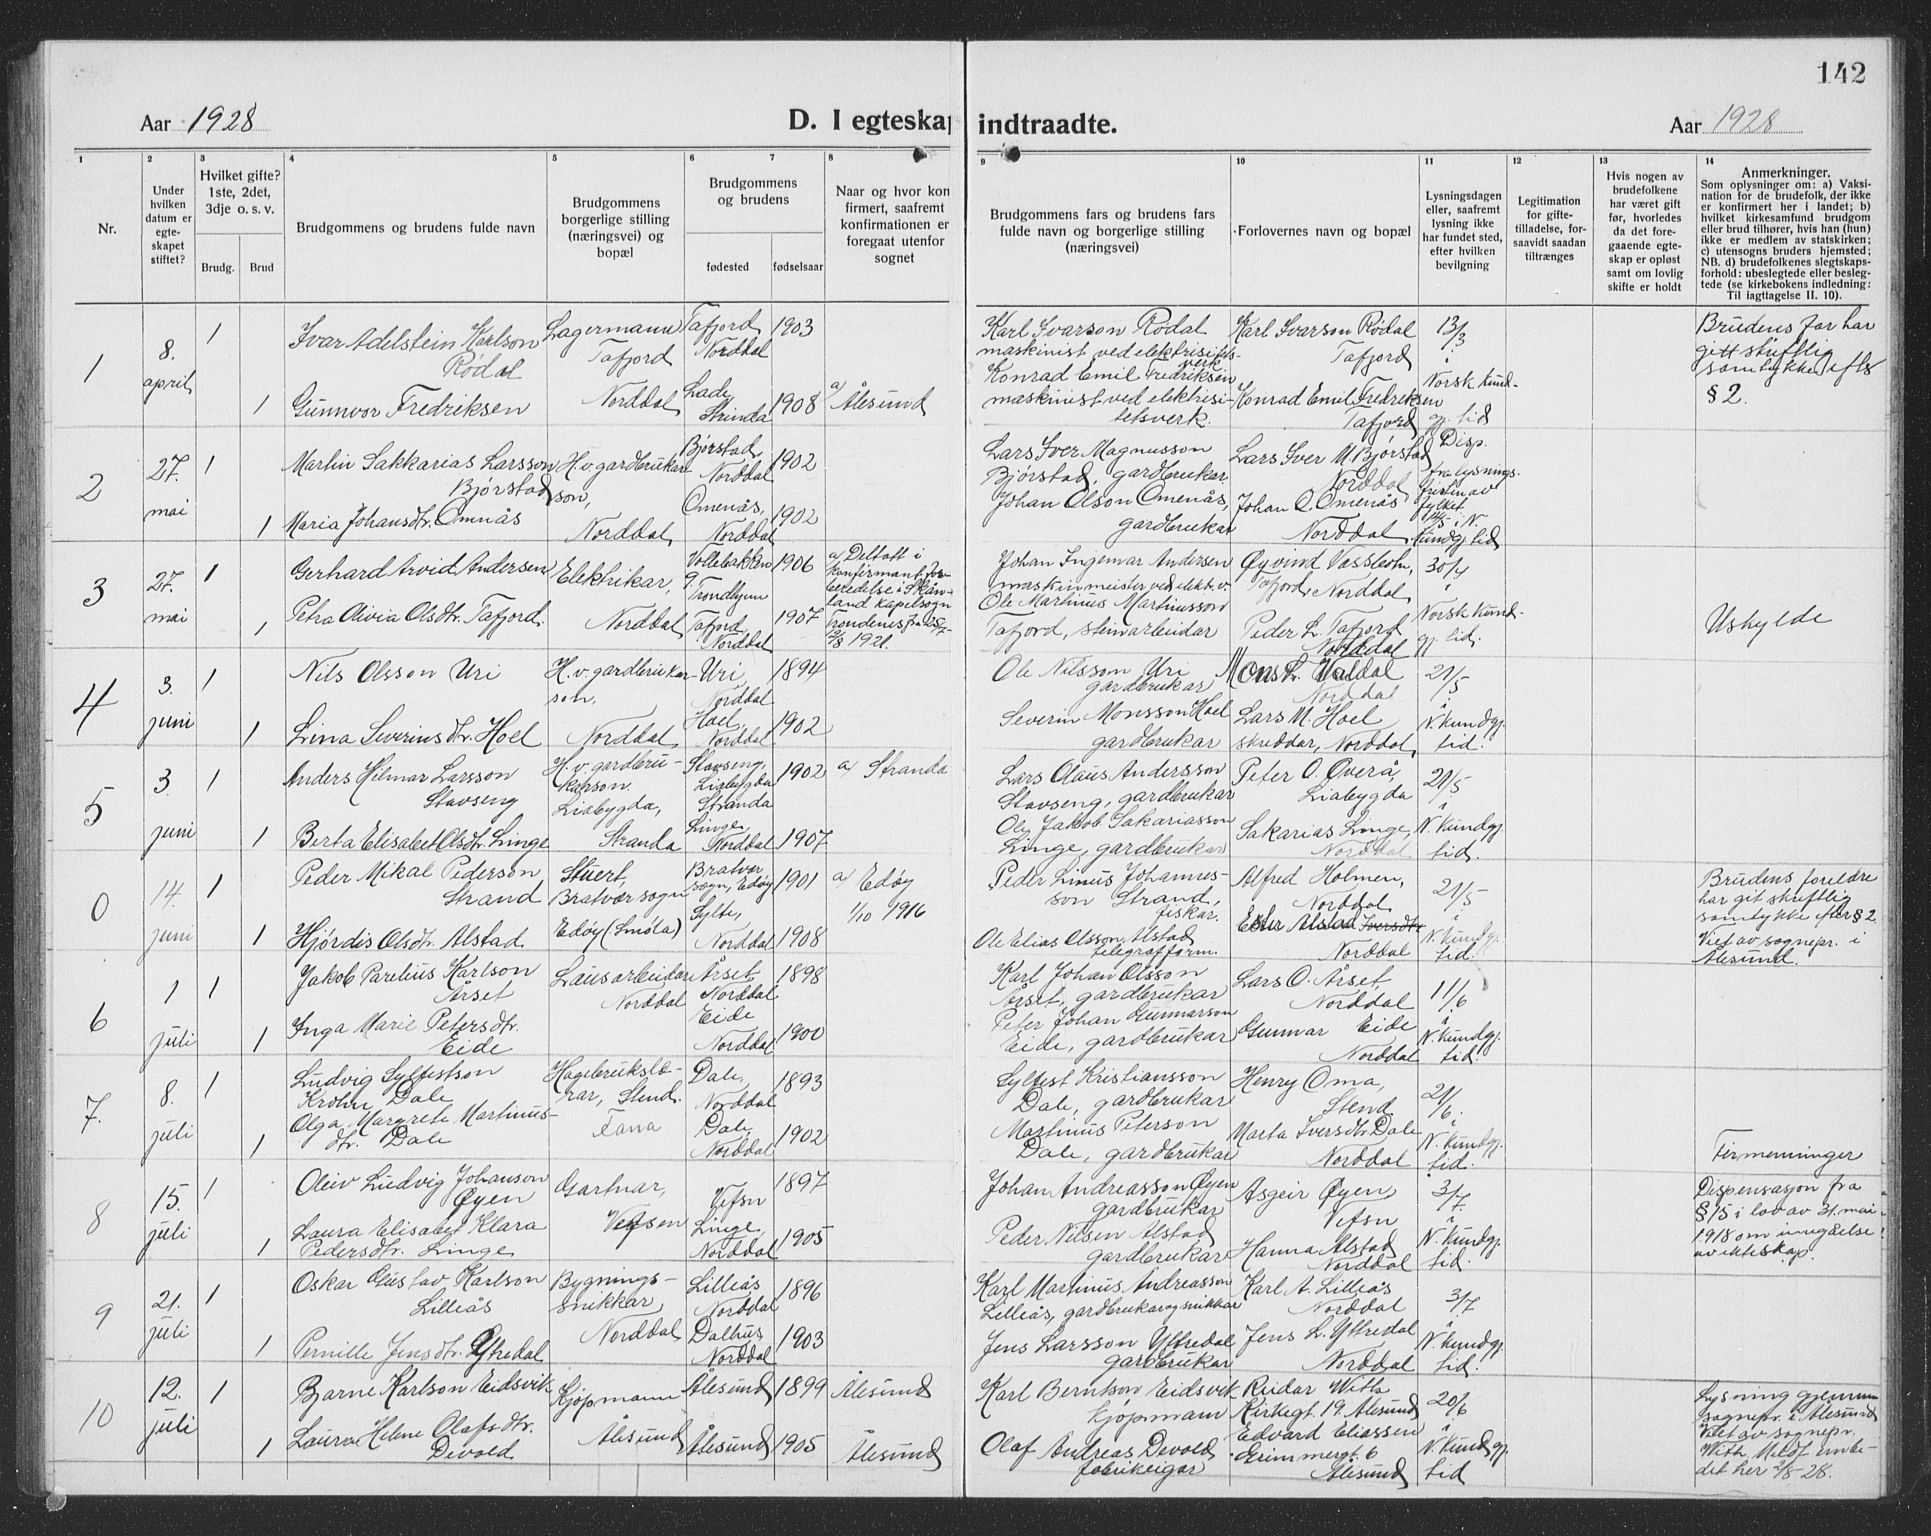 142
Aar 1928
D. I egteskap
indtraadte.
Aar 1928
1 2 3 4 5 6 7 8 9 10 11 12 13 14
Nr.
Under
hvilken
datum er
egte-
skapet
stiftet?
Hvilket gifte?
1ste, 2det,
3dje o. s. v.
Brudg. Brud
Brudgommens og brudens fulde navn
Brudgommens
borgerlige stilling
(næringsvei) og
bopæl
Brudgommens
og brudens
fødested fødselsaar
Naar og hvor kon
firmert, saafremt
konfirmationen er
foregaat utenfor
sognet
Brudgommens fars og brudens fars
fulde navn og borgerlige stilling
(næringsvei)
Forlovernes navn og bopæl
Lysningsdagen
eller, saafremt
lysning ikke
har fundet sted,
efter hvilken
bevilgning
Legitimation
for gifte-
tilladelse, for-
saavidt saadan
tiltrænges
Hvis nogen av
brudefolkene
har været gift
før, hvorledes
da det fore-
gaaende egte-
skap er opløst
samt om lovlig
skifte er holdt
Anmerkninger.
Som oplysninger om: a) Vaksi-
nation for de brudefolk, der ikke
er konfirmert her i landet; b)
hvilket kirkesamfund brudgom
eller brud tilhører, hvis han (hun)
ikke er medlem av statskirken;
c) utensogns bruders hjemsted;
NB. d) brudefolkenes slegtskaps-
forhold: ubeslegtede eller besleg-
tede (se kirkebokens indledning:
Til iagttagelse II. 10).
1
8.
april
1
Ivar Adelstein Karlson
Rødal
Lagermann
Tafjord
Norddal
Tafjord
Norddal
1903
Karl Ivarson Rødal
maskinist ved elektrisitets-
verk
Karl Ivarson Rødal
Tafjord
13/3
i
Norsk kund-
gj. tid
Brudens far har
gitt skriftlig
samtykke efter
§ 2.
1
Gunnvor Fredriksen
Lade
Strinda
1908
a/ Ålesund
Konrad Emil Fredriksen
maskinist ved elektrisi-
tetsverk.
Konrad Emil Fredriksen
Tafjord
2
27.
mai
1
Martin Sakkarias Larsson
Bjørstad
H.v. gardbrukar
son,
Norddal
Bjørstad
Norddal
1902
Lars Iver Magnusson
Bjørstad, gardbrukar
Lars Iver M. Bjørstad
Norddal
Disp.
fra lysnings-
fristen av
fylket
14/5 i N.
kundgj. tid
1
Maria Johansdtr. Omnås
Omenås,
Norddal
1902
Johan Olson Omenås,
gardbrukar
Johan O. Omenås
Norddal
3
27.
mai
1
Gerhard Arvid Andersen
Elektrikar,
Norddal
Vollebakken
g.
Trondhjem
1906
a/ Deltatt i
konfirmantfor-
beredelse i Skån-
land kapelsogn
Trondenes fra 25/7-
12/8 1921.
Johan Ingemar Andersen
maskinmeister ved elektr. v.
Øyvind Vassbotn,
Tafjord, Norddal
30/4
i
Norsk kund-
gj. tid.
Uskylde
1
Petra Olivia Olsdtr. Tafjord.
Tafjord
Norddal
1907
Ole Martinus Martinusson
Tafjord, steinarbeidar
Peder L. Tafjord
Norddal
4
3.
juni
1
Nils Olsson Uri
H.v. gardbrukar-
son,
Norddal
Uri
Norddal
1894
Ole Nilsson Uri
gardbrukar
Mons L. Valdal
Norddal
21/5
i
N. kundgj.
tid.
1
Lina Severinsdtr. Hoel
Hoel,
Norddal
1902
Severin Monsson Hoel
gardbrukar
Lars M. Hoel
skreddar, Norddal
5
3.
juni
1
Anders Hilmar Larsson
Stavseng
H.v. gardbru-
karson.
Liabygda,
Stranda
Stavseng,
Liabygda
Stranda
1902
a/ Stranda
Lars Olaus Andersson
Stavseng, gardbrukar
Peter O. Overå,
Liabygda
21/5
i
N. kundgj.
tid.
1
Berta Elisabet Olsdtr. Linge
Linge,
Norddal
1907
Ole Jakob Sakariasson
Linge, gardbrukar
Sakarias Linge,
Norddal.
0
14.
juni
1
Peder Mikal Pederson
Strand
Stuert,
Bratvær sogn
Edøy (Smøla)
Bratvær
sogn, Edøy
1901
a/ Edøy
1/10 1916
Peder Linus Johannes-
son Strand,
fiskar.
Alfred Holmen,
Norddal
21/5
i
N. kundgj.
tid.
Brudens foreldre
har git skriftlig
samtykke efter § 2.
Viet av sognepr. i
Ålesund.
1
Hjørdis Olsdtr. Alstad
Sylte,
Norddal
1908
Ole Elias Olsson Alstad
telegrafform.
Ester Alstad Iversdtr
Norddal
6
1
juli
1
Jakob Parelius Karlson
Årset
Lausarbeidar
Norddal
Årset,
Norddal
1898
Karl Johan Olsson
Årset, gardbrukar
Lars O. Årset,
Norddal
11/6
i
N. kundgj.
tid.
1
Inga Marie Petersdtr.
Eide
Eide
Norddal
1900
Peter Johan Gunnarson
Eide, gardbrukar
Gunnar Eide
Norddal
7.
8.
juli
1
Ludvig Sylfestson
Krohn Dale
Hagebrukslæ-
rar, Stend.
Fana
Dale,
Norddal
1893
Sylfest Kristiansson
Dale, gardbrukar
Henry Oma,
Stend
21/6.
i
N. kundgj.
tid.
Firmenninger
1
Olga Margrete Martinus-
dtr. Dale
Dale,
Norddal
1902
Martinus Peterson
Dale, gardbrukar
Marta Iversdtr. Dale
Norddal
8
15.
juli
1
Oleiv Ludvig Johanson
Øyen
Gartnar,
Vefsen
Vefsn
1897
Johan Andreasson Øyen
gardbrukar
Asgeir Øyen,
Vefsn
3/7.
i
N. kundgj.
tid.
Dispensasjon fra
§ 15 i lov av 31. mai
1918 om inngåelse
av ekteskap.
1
Laura Elisabet Klara
Pedersdtr. Linge
Linge,
Norddal
1905
Peder Nilsen Alstad
gardbrukar
Hanna Alstad
Norddal
9
21.
juli
1
Oskar Gustav Karlson
Lilleås
Bygnings-
snikkar,
Norddal
Lilleås
Norddal
1896
Karl Martinus Andreasson
Lilleås, gardbrukar og snikkar
Karl A. Lilleås
Norddal
3/7
i
N. kundgj.
tid.
1
Pernille Jensdtr. Ytredal
Dalhus
Norddal
1903
Jens Larsson Yttredal
gardbrukar
Jens L. Yttredal
Norddal
10
12.
juli
1
Bjarne Karlson Eidsvik
Kjøpmann
Ålesund
Ålesund
1899
Ålesund
Karl Berntson Eidsvik
kjøpmann
Reidar With
Kirkegt. 19. Ålesund
20/6
i
N. kundgj.
tid
Lysning gjennem
sognepr. i Ålesund
Viet av sognepr.
With. Meldt innbe-
det her 2/8-28.
1
Laura Helene Olafsdtr.
Devold
Ålesund
1905
Ålesund
Olaf Andreas Devold
fabrikeigar
Edvard Eliassen
Grimmergt. 6
Ålesund